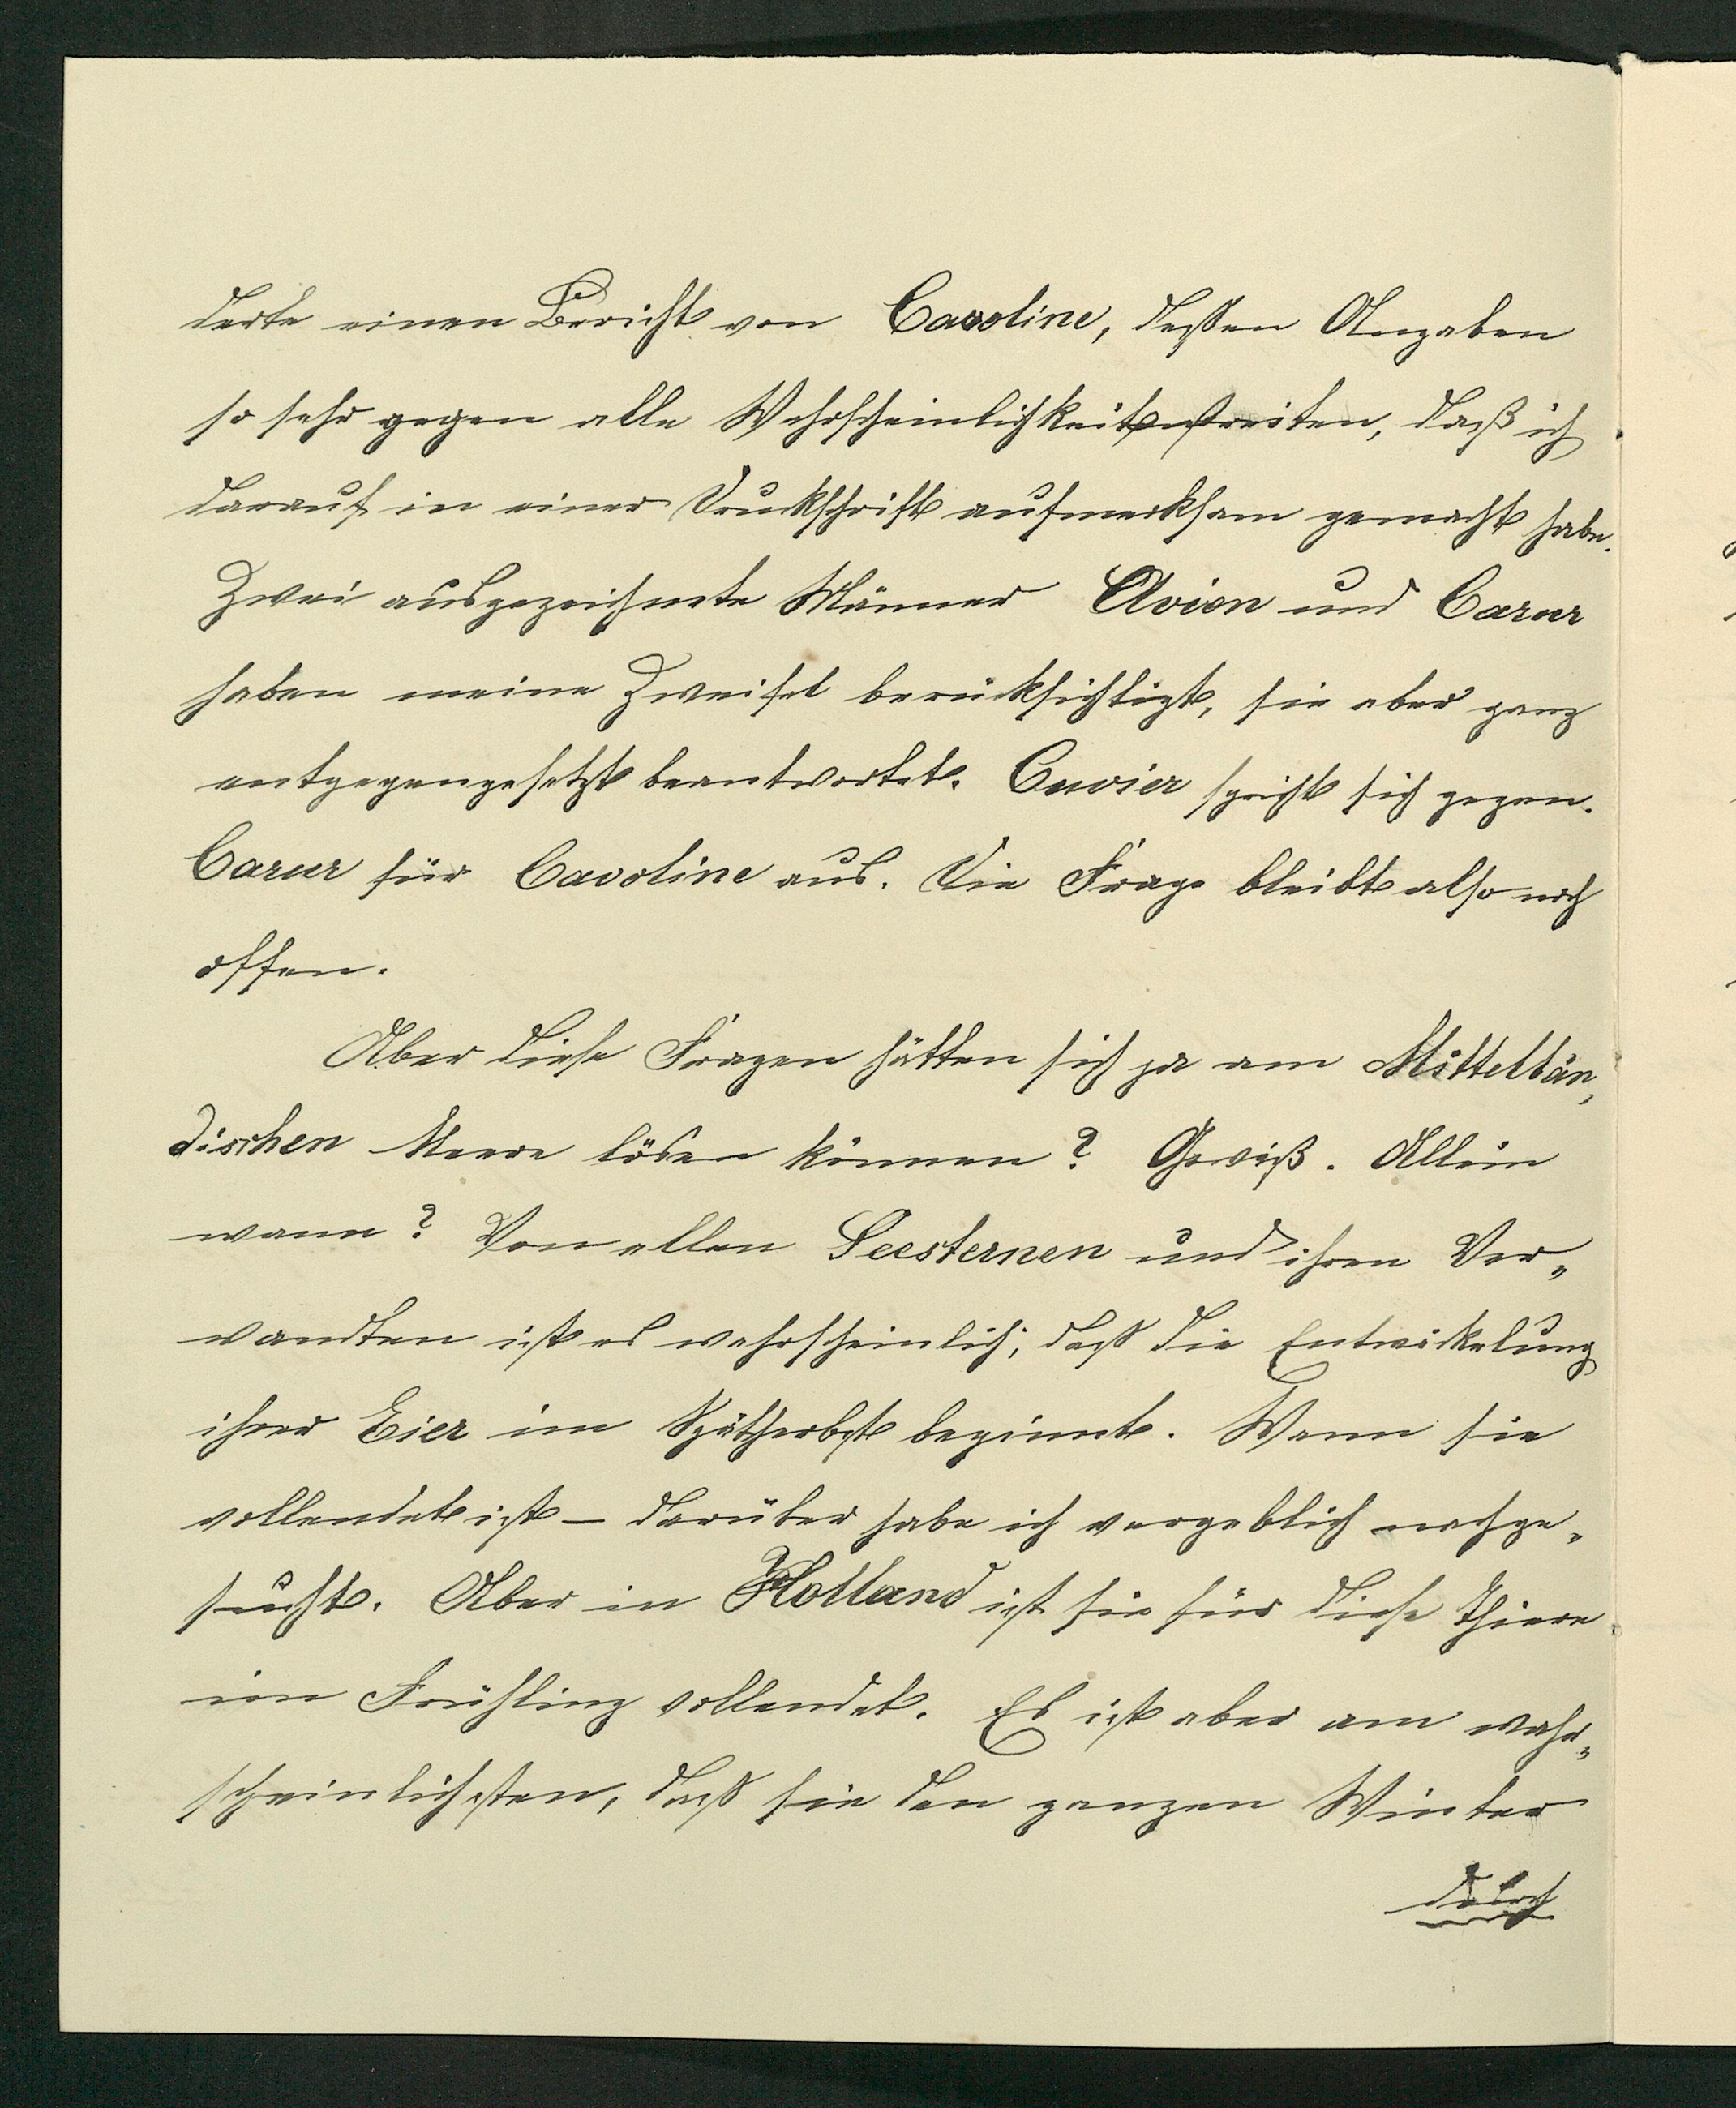 derte einen Bericht von Cavoline, deßen Angaben
so sehr gegen alle Wahrscheinlichkeit streiten, daß ich
darauf in einer Druckschrift aufmerksam gemacht habe.
Zwei ausgezeichnete Männer Avien und Carur
haben meine Zweifel berücksichtigt, sie aber ganz
entgegengesetzt beantwortet. Cuvier spricht sich gegen
Carur für Cavoline aus. Die Frage bleibt also noch
offen.
Aber diese Fragen hätten sich ja am Mittellän„
dischen Meere lösen können? Gewiß. Allein
wann? Von allen Seesternen und ihren Ver„
wandten ist es wahrscheinlich, daß die Entwickelung
ihrer Eier im Spätherbst beginnt. Wann sie
vollendet ist – darüber habe ich vergeblich nachge„
sucht. Aber in Holland ist sie für diese Thiere
im Frühling vollendet. Es ist aber am wahr„
scheinlichsten, daß sie den ganzen Winter